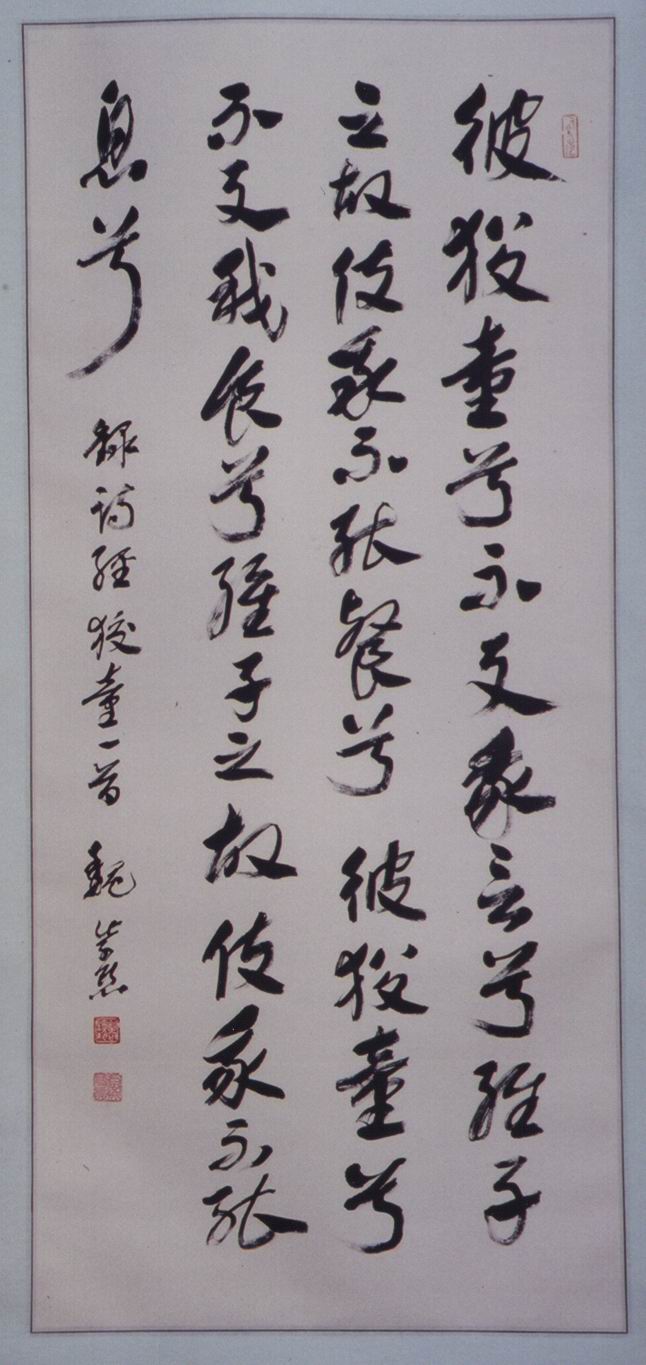 彼狡童兮不與我言兮維子
之故使我不能餐兮 彼狡童兮
不與我食兮維子之故使我不能
息兮 錄詩經狡童一首 魏